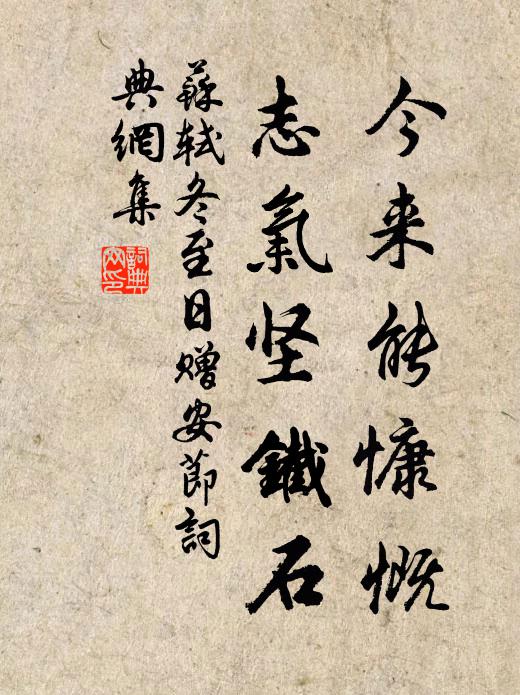 今来能慷慨
志氣坚鐵石
蘇軾冬至日贈安節詞
典網集
詞典
文印